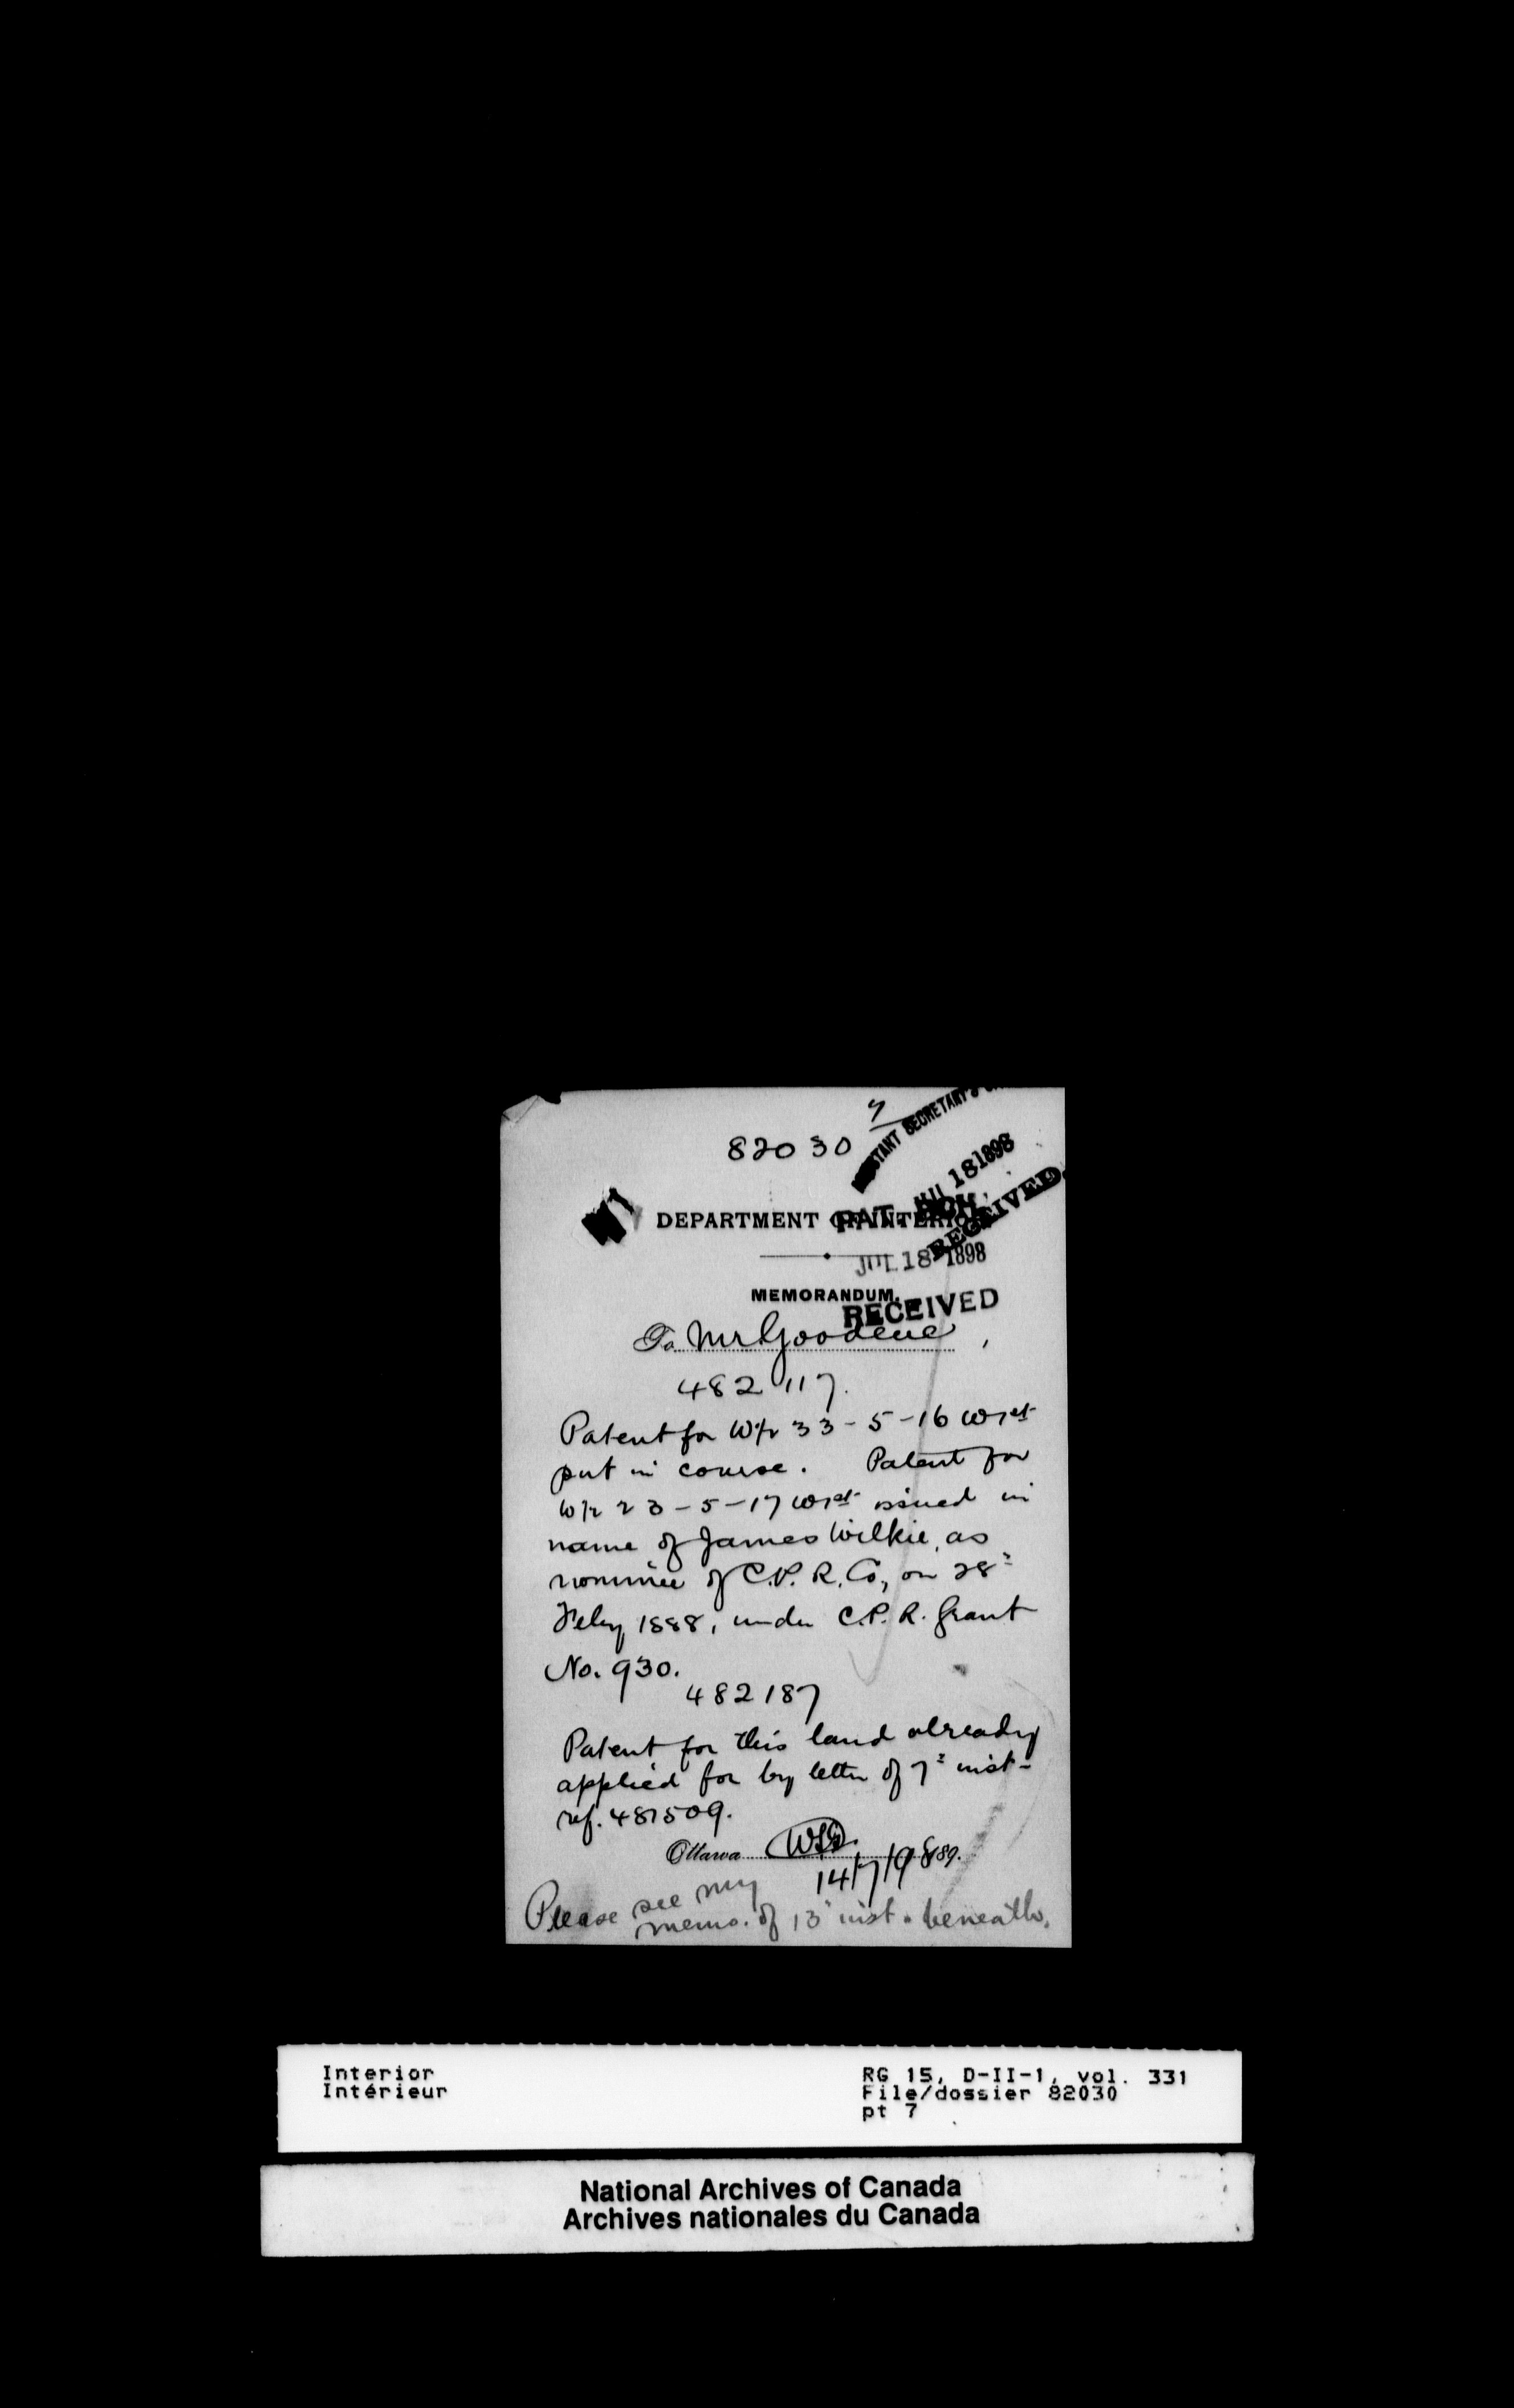 7
82030
ASSISTANT SECRETARY'S
JUL 18 1898
RECEIVED
DEPARTMENT OF INTERIOR
PAT. BCH.
JUL 18 1898
RECEIVED
MEMORANDUM.
To Mr Goodeve
482117.
Patent for W½ 33-5-16 W1st
put in course. Patent for
W½ 23-5-17 W1st issued in
name of James Wilkie, as
nominee of C.P.R. Co., on 28"
Feby 1888, under C.P.R. Grant
No. 930.
482187
Patent for this land already
applied for by letter of 7" inst-
ref. 481509.
Ottawa 189.
14/7/98
Please see my
memo. of 13" inst. beneath.
Interior
Intérieur
RG 15, D-II-1, vol. 331
File/dossier 82030
pt 7
National Archives of Canada
Archives nationales du Canada